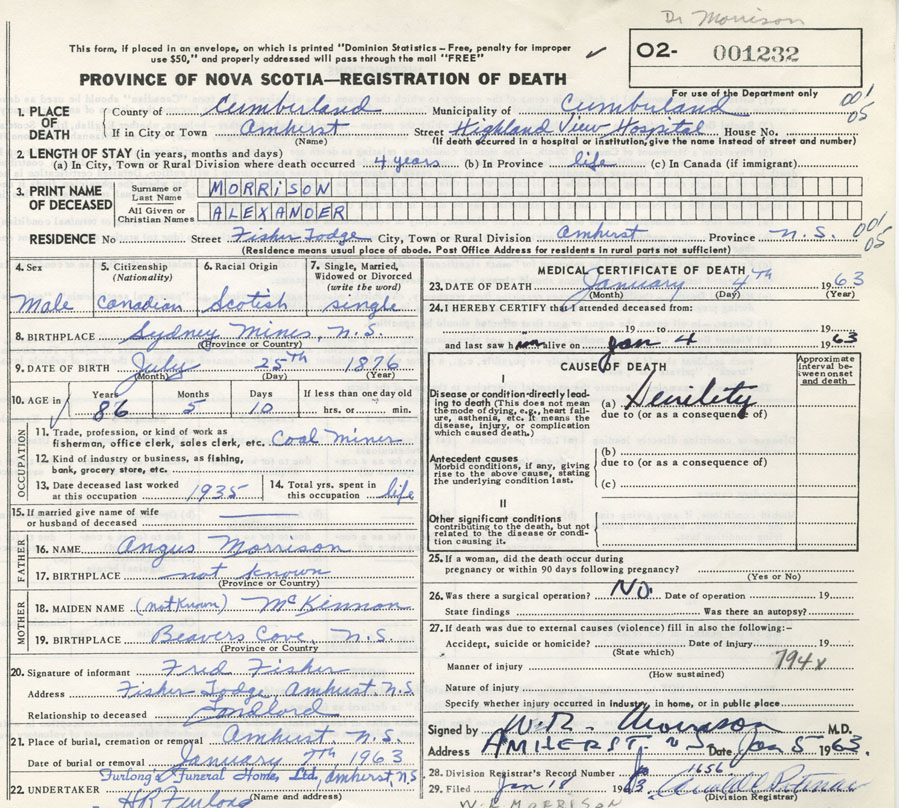 Dr Morrison
This form, if placed in an envelope, on which is printed "Dominion Statistics – Free, penalty for improper
use $50," and properly addressed will pass through the mail "FREE"
✓
02- 001232
PROVINCE OF NOVA SCOTIA—REGISTRATION OF DEATH
For use of the Department only
1. PLACE OF DEATH { County of Cumberland Municipality of Cumberland 001 05
If in City or Town Amherst Street Highland View Hospital House No.
(Name) (If death occurred in a hospital or institution, give the name instead of street and number)
2. LENGTH OF STAY (in years, months and days)
(a) In City, Town or Rural Division where death occurred 4 years (b) In Province life (c) In Canada (if immigrant)
3. PRINT NAME OF DECEASED { Surname or Last Name MORRISON
All Given or Christian Names ALEXANDER
RESIDENCE No Street Fisher Lodge City, Town or Rural Division Amherst Province N.S. 001 05
(Residence means usual place of abode. Post Office Address for residents in rural parts not sufficient)
4. Sex Male
5. Citizenship (Nationality) Canadian
6. Racial Origin Scotish
7. Single, Married, Widowed or Divorced (write the word) single
8. BIRTHPLACE Sydney Mines, N.S.
(Province or Country)
9. DATE OF BIRTH July 25th 1876
(Month) (Day) (Year)
10. AGE in Years 86 Months 5 Days 10 If less than one day old
hrs. or min.
OCCUPATION
11. Trade, profession, or kind of work as
fisherman, office clerk, sales clerk, etc. Coal Miner
12. Kind of industry or business, as fishing,
bank, grocery store, etc.
13. Date deceased last worked at this occupation 1935
14. Total yrs. spent in this occupation life
15. If married give name of wife
or husband of deceased
FATHER
16. NAME Angus Morrison
17. BIRTHPLACE not known
(Province or Country)
MOTHER
18. MAIDEN NAME (not known) McKinnon
19. BIRTHPLACE Beavers Cove, N.S.
(Province or Country
20. Signature of informant Fred Fisher
Address Fisher Lodge, Amherst. N.S
Relationship to deceased Landlord
21. Place of burial, cremation or removal Amherst N.S.
Date of burial or removal January 7th 1963
Furlong's Funeral Home Ltd, Amherst, N.S
22. UNDERTAKER HR Furlong
(Name and address)
MEDICAL CERTIFICATE OF DEATH
23. DATE OF DEATH January 4th 1963
(Month) (Day) (Year)
24. I HEREBY CERTIFY that I attended deceased from:
19 to 19
and last saw him alive on Jan 4 1963
CAUSE OF DEATH
Approximate interval between onset and death
I
Disease or condition directly leading to death (This does not mean
the mode of dying, e.g., heart failure, asthenia, etc. It means the
disease, injury, or complication
which caused death.)
(a) Senility
due to (or as a consequence of)
Antecedent causes
Morbid conditions, if any, giving
rise to the above cause, stating
the underlying condition last.
(b)
due to (or as a consequence of)
(c)
II
Other significant conditions
contributing to the death, but not
related to the disease or condition causing it.
25. If a woman, did the death occur during
pregnancy or within 90 days following pregnancy?
(Yes or No)
26. Was there a surgical operation? NO. Date of operation 19
State findings Was there an autopsy?
27. If death was due to external causes (violence) fill in also the following:–
Accident, suicide or homicide? Date of injury 19
(State which)
794x
Manner of injury
(How sustained)
Nature of injury
Specify whether injury occurred in industry, in home, or in public place
Signed by W.R. Morrison M.D.
Address AMHERST N S Date Jan 5 1963.
28. Division Registrar's Record Number 1656
29. Filed Jan 18 1963.
(Division Registrar)
W.R. MORRISON